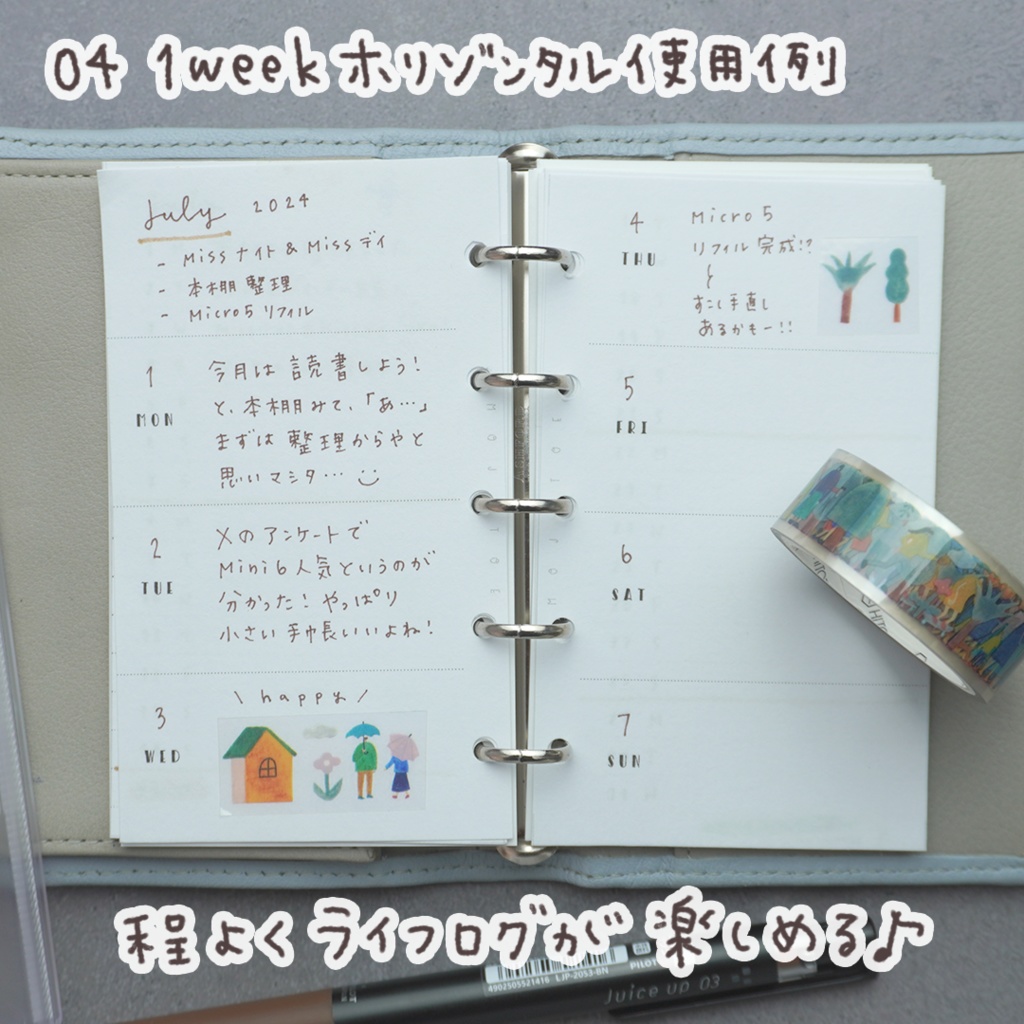 04 1weekホリゾンタル使用例
July 2024
- Missナイト & Missデイ
- 本棚整理
- Micro5リフィル
1
MON
今月は読書しよう!
と、本棚みて、「あ…」
まずは整理からやと
思いマシタ…
2
TUE
Xのアンケートで
Mini6人気というのが
分かった!やっぱり
小さい手帳いいよね!
3
WED
\ happy /
4
THU
Micro5
リフィル完成!?
すこし手直し
あるかもー!!
5
FRI
6
SAT
7
SUN
程よくライフログが楽しめる♪
4902505521416 LJP-20S3-BN
PILOT
Juice up 03